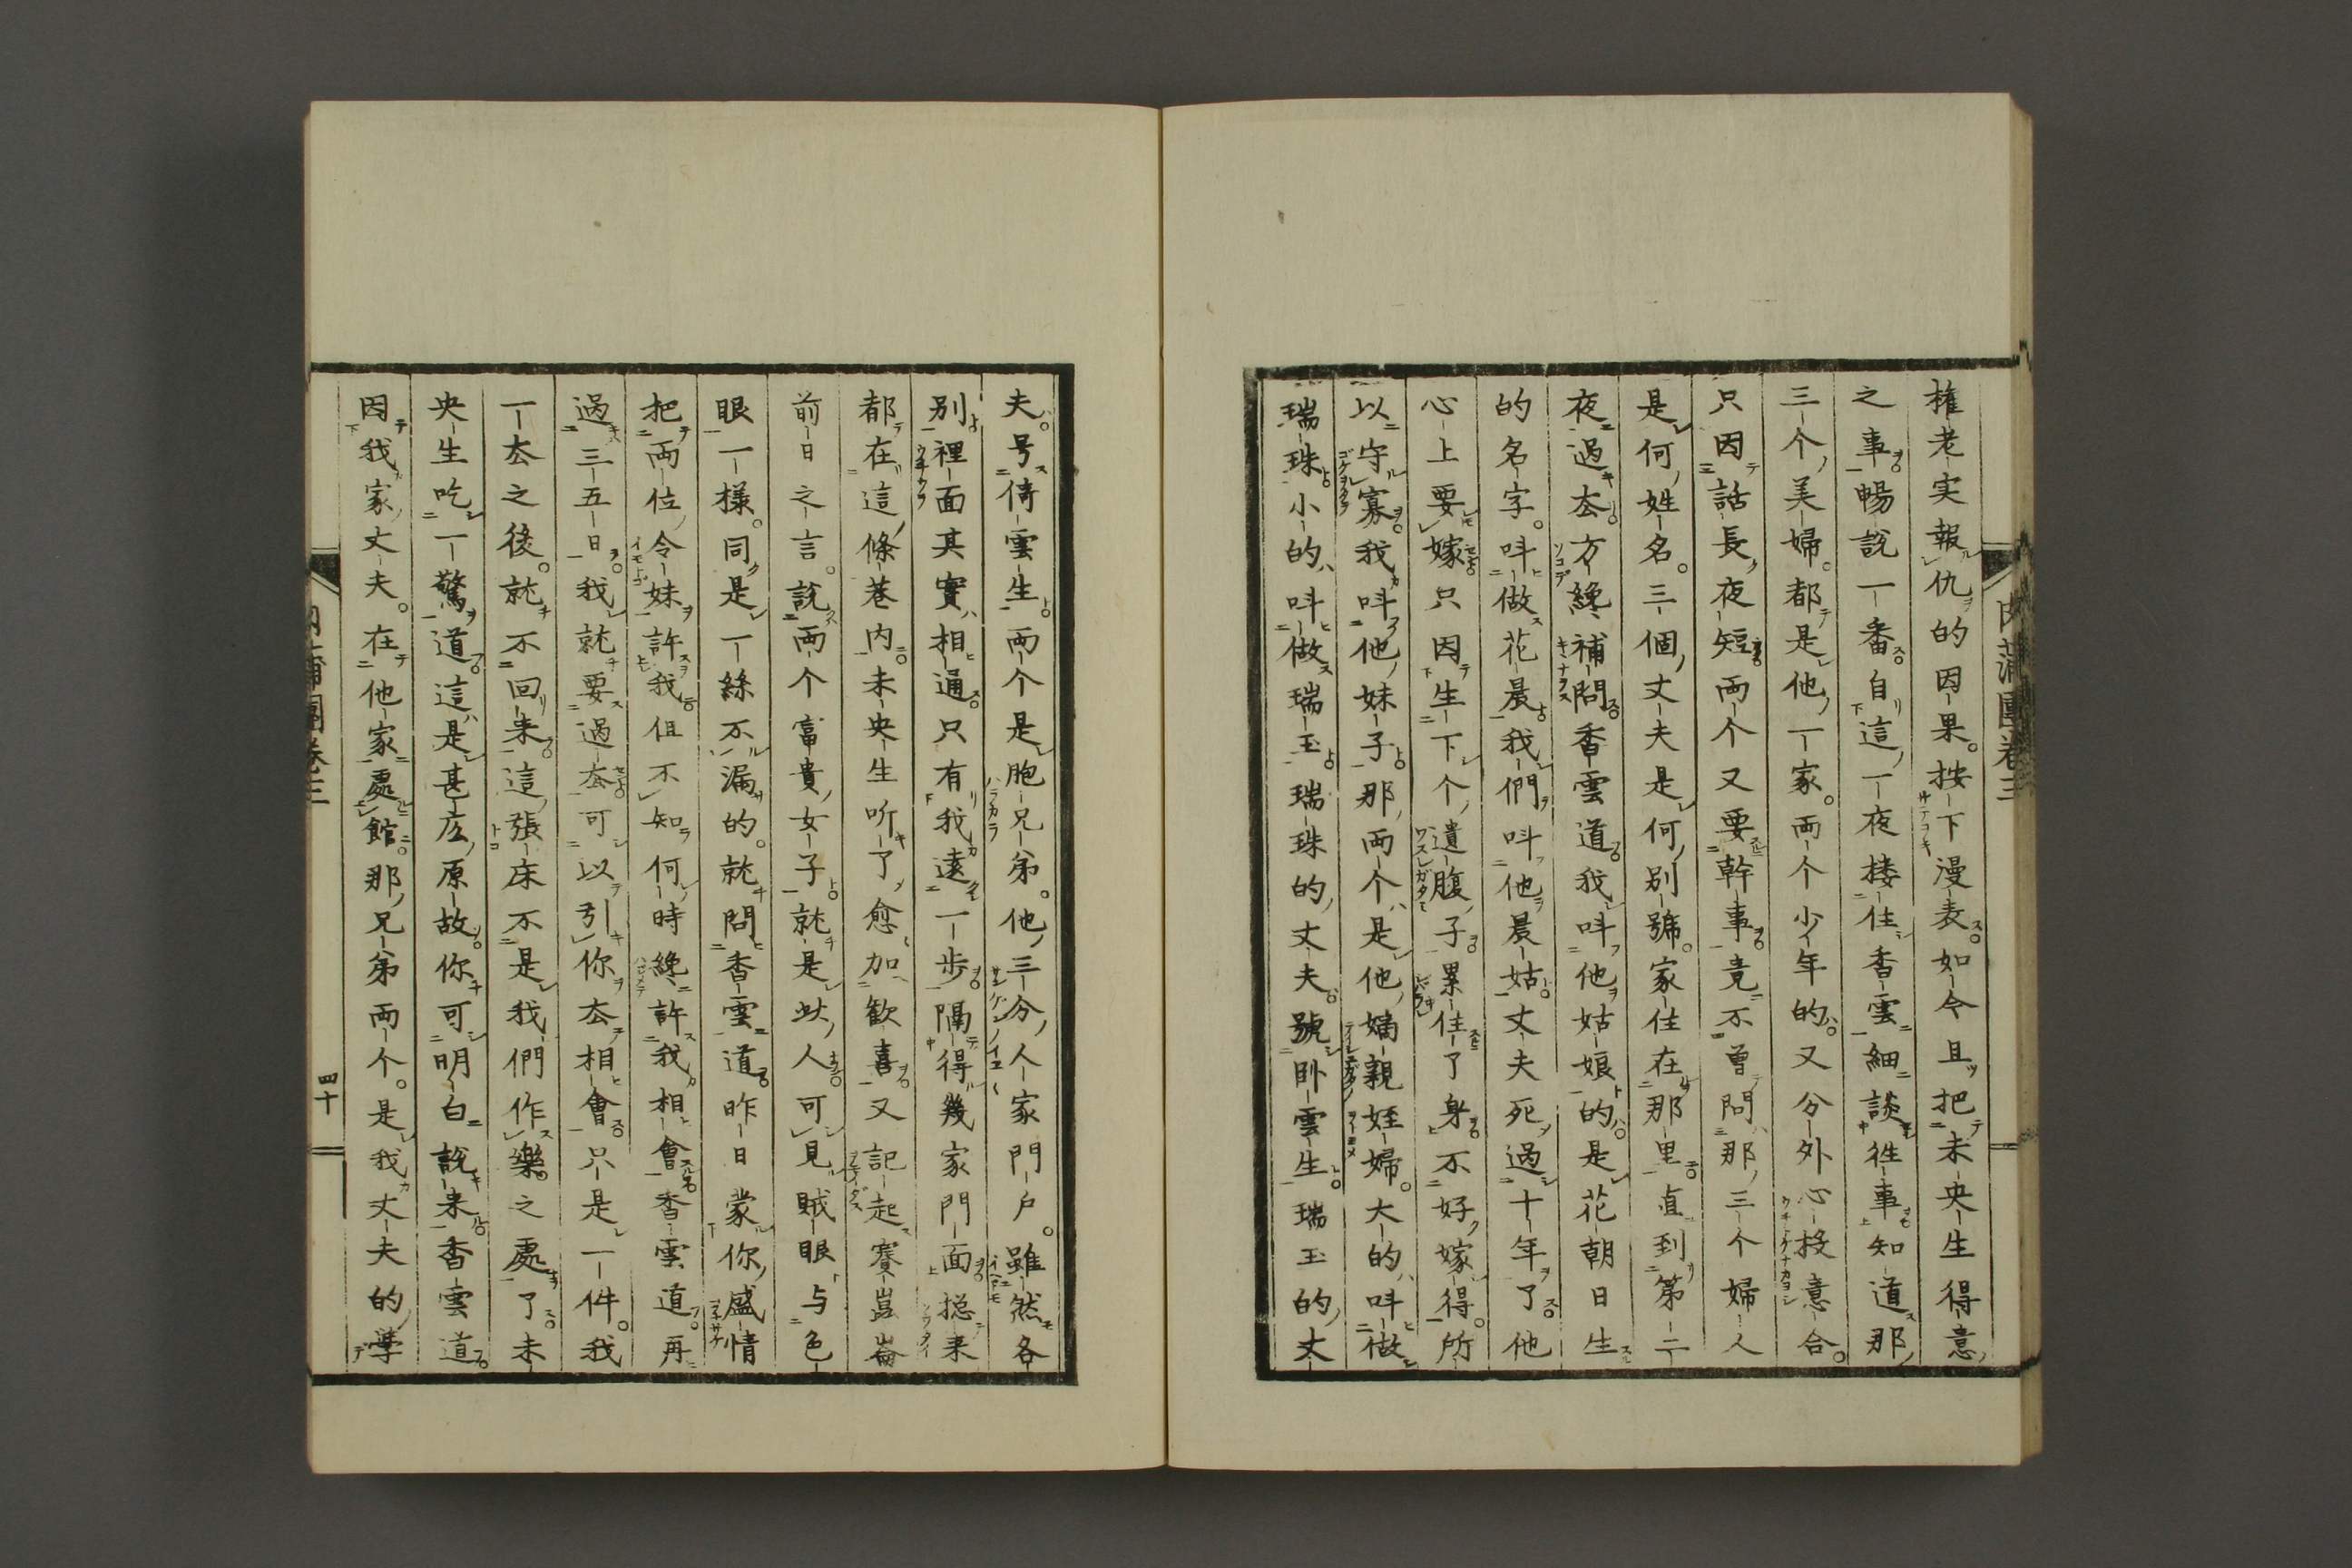 肉蒲團卷三
權老実報仇的因果。按下漫表。如今且把未央生得意
之事暢説一番自這一夜摟住香雲細談往事知道那
三个美婦。都是他一家。兩个少年的。又分外心投意合。
只因話長夜短。兩个又要幹事竟不曽問那三个婦人
是何姓名。三個丈夫是何別號。家住在那里直到第二
夜過去。方纔補問香雲道我叫他姑娘的。是花朝日生
的名字。叫做花晨我們叫他晨姑丈夫死過十年了他
心上要嫁只因生下个遺腹子累住了身不好嫁得。所
以守寡。我叫他妹子那兩个是他嫡親姪婦。大的叫做
瑞珠小的叫做瑞玉瑞珠的丈夫。號卧雲生。瑞玉的丈
夫。号倚雲生。兩个是胞兄弟。他三分人家門户。雖然各
別裡面其實相通。只有我遠一歩。隔得幾家門面。搃来
都在這條巷内。未央生听了愈加歡喜。又記起賽崑崙
前日之言。説兩个富貴女子就是此人。可見賊眼与色
眼一様。同是一絲不漏的。就問香雲道。昨日蒙你盛情
把兩位令妹許我但不知何時纔許我相會香雲道。再
過三五日。我就要過去。可以引你去相會只是一件。我
一去之後。就不回来。這張床不是我們作樂。之處了未
央生吃一驚道。這是甚庅原故。你可明白説来香雲道。
因我家丈夫。在他家處館。那兄弟兩个。是我丈夫的學
四十